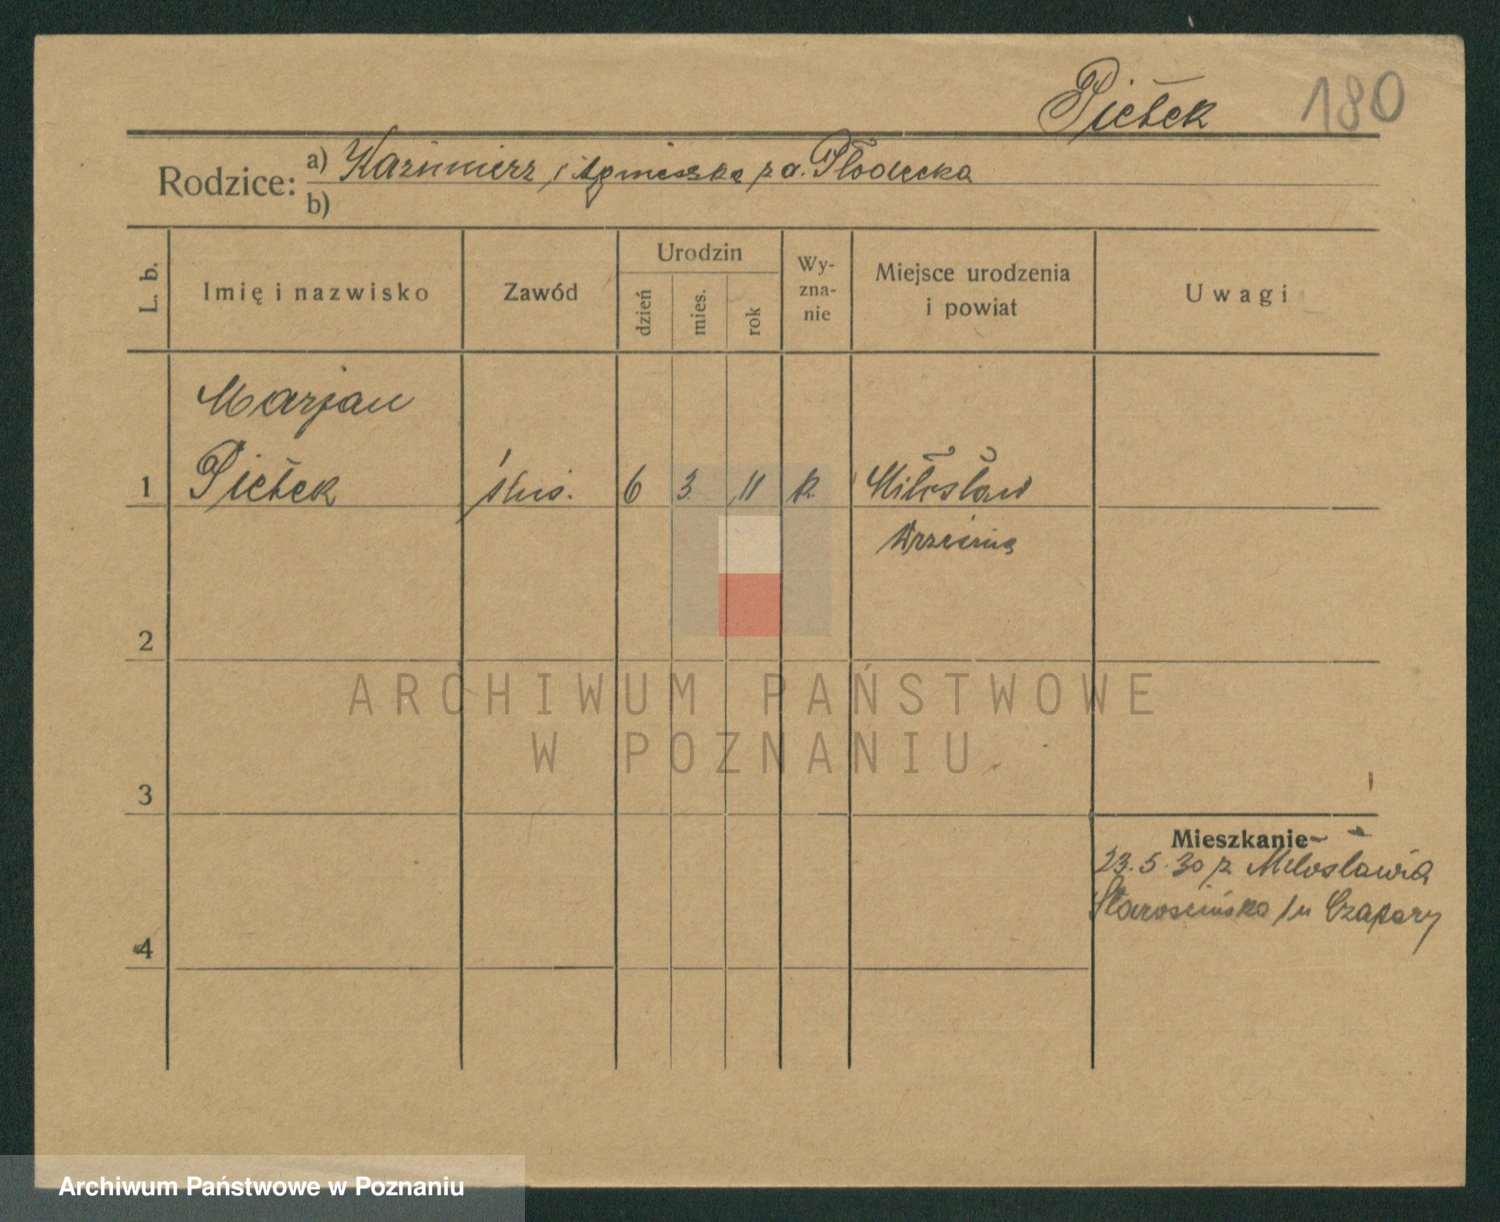 Piełek 180
Rodzice: a) Kazimierz i Agnieszka z d. Płodecka
b)
L. b. Imię i nazwisko Zawód Urodzin dzień mies. rok Wyznanie Miejsce urodzenia i powiat Uwagi
Marjan
1 Piełek ślus. 6 3. 11 k. Miłosław
Września
2
ARCHIWUM PAŃSTWOWE
W POZNANIU
3
Mieszkanie
23.5.30 z Miłosławia
4
Archiwum Państwowe w Poznaniu